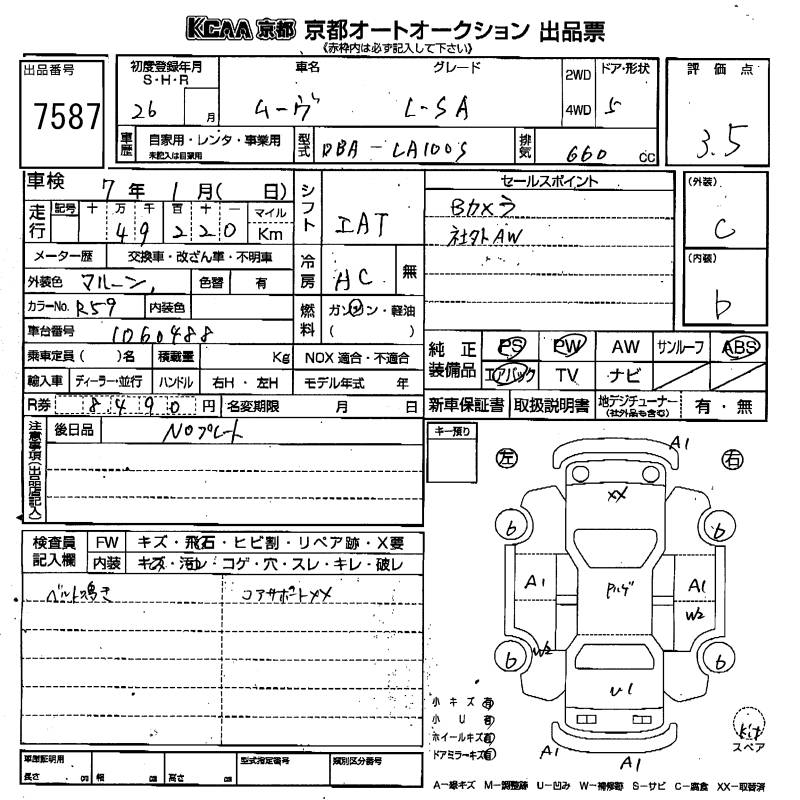 KCAA 京都 京都オートオークション 出品票
《赤枠内は必ず記入して下さい》
出品番号
7587
初度登録年月
S・H・R
26 月
車名
ムーヴ
グレード
L-SA
2WD
4WD
ドア・形状
5
評価点
3.5
車歴
自家用・レンタ・事業用
未記入は自家用
型式
DBA-LA100S
排気
660 cc
車検 7年 1月( 日)
走行
記号 十 万 千 百 十 一 マイル
49220 Km
メーター歴 交換車・改ざん車・不明車
外装色 マルーン
色替 有
カラーNo. R59
内装色
車台番号 1060488
乗車定員( )名 積載量 Kg
NOX 適合・不適合
輸入車 ディーラー・並行 ハンドル 右H・左H モデル年式 年
R券 8490円 名変期限 月 日
シフト IAT
冷房 AC 無
燃料 ガソリン・軽油
( )
セールスポイント
Bカメラ
社外AW
(外装)
C
(内装)
b
純正装備品
PS PW AW サンルーフ ABS
エアバック TV ナビ
新車保証書 取扱説明書 地デジチューナー 有・無
(社外品も含む)
注意事項(出品店記入)
後日品 NOプレート
キー預り
左
右
検査員記入欄
FW キズ・飛石・ヒビ割・リペア跡・X要
内装 キズ・汚レ・コゲ・穴・スレ・キレ・破レ
ベルト鳴き
コアサポートXX
A1
XX
b
b
A1
A1
W2
b
W2
b
U1
A1
A1
小キズ 有
小U 有
ホイールキズ 有
ドアミラーキズ 有
Kit
スペア
A-線キズ M-調整跡 U-凹み W-補修跡 S-サビ C-腐食 XX-取替済
車庫証明用
長さ cm 幅 cm 高さ cm
型式指定番号
類別区分番号